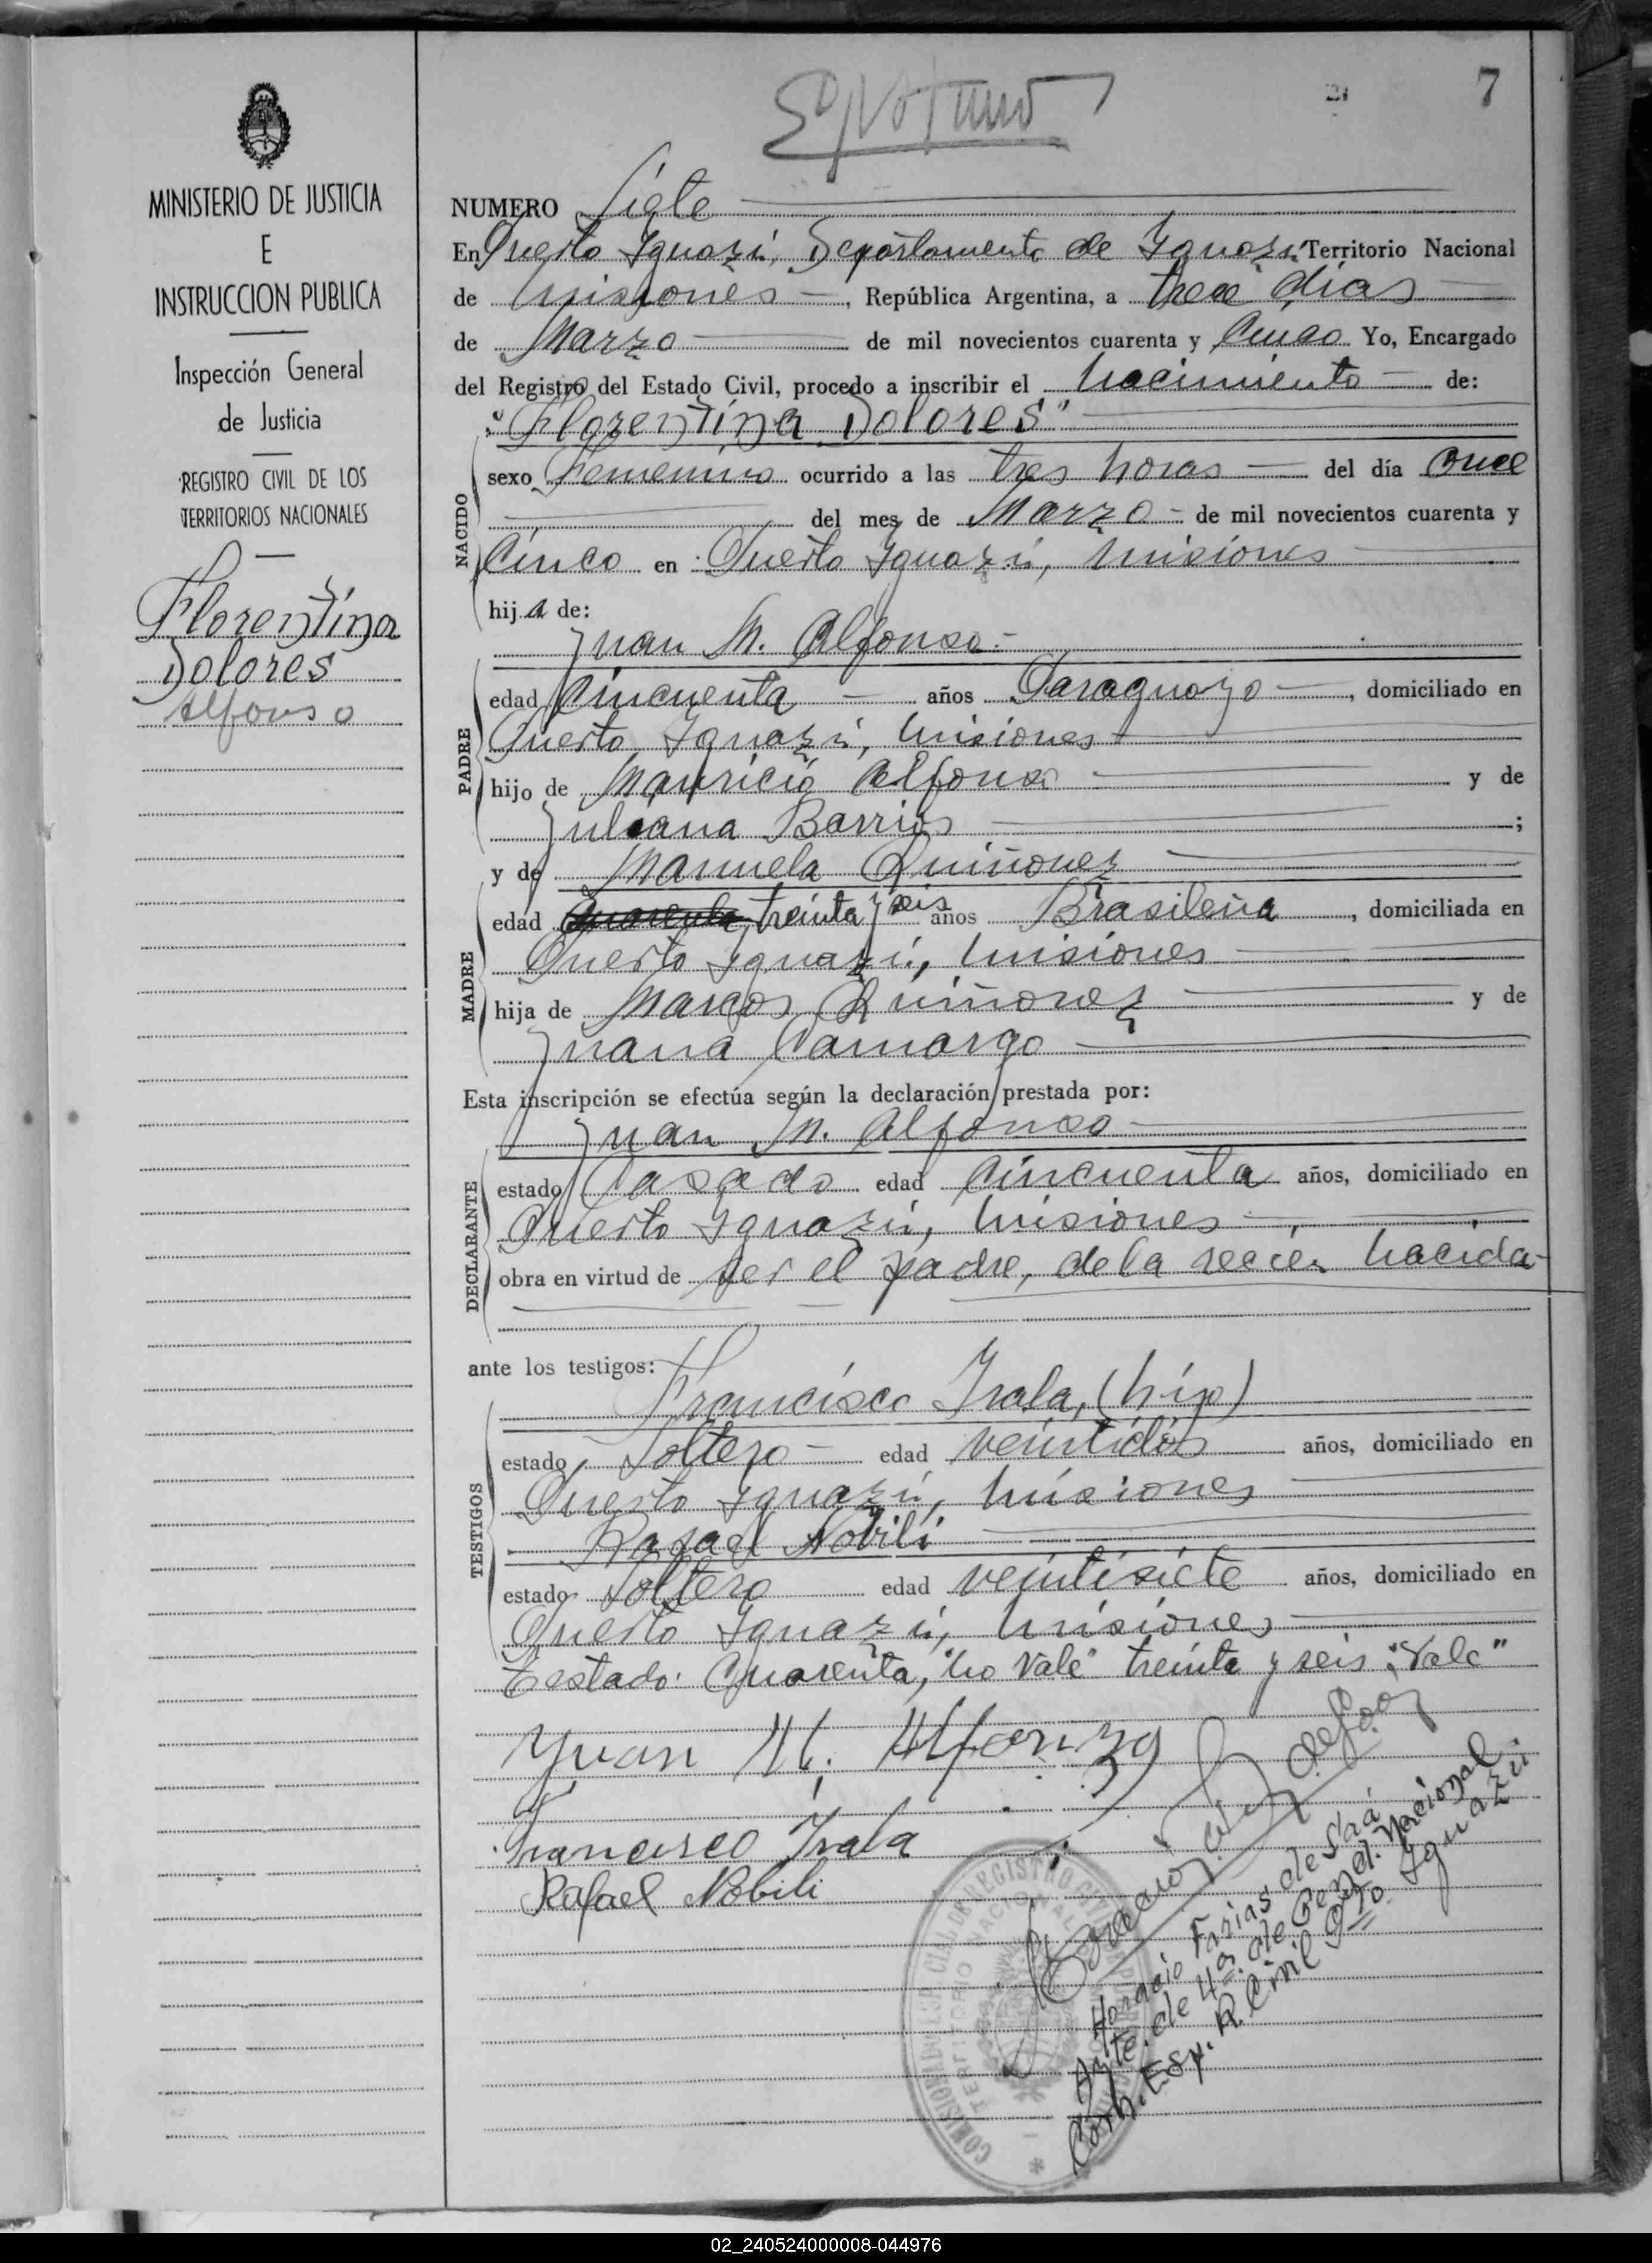 7
MINISTERIO DE JUSTICIA
E
INSTRUCCION PUBLICA
Inspección General
de Justicia
REGISTRO CIVIL DE LOS
TERRITORIOS NACIONALES
Florentina
Dolores
Alfonso
NUMERO Siete
En Puerto Iguazú, Departamento de Iguazú Territorio Nacional
de Misiones, República Argentina, a trece días
de Marzo de mil novecientos cuarenta y Cinco Yo, Encargado
del Registro del Estado Civil, procedo a inscribir el nacimiento de:
"Florentina Dolores"
NACIDO
sexo Femenino ocurrido a las tres horas del día once
del mes de Marzo de mil novecientos cuarenta y
Cinco en Puerto Iguazú, Misiones
hija de:
Juan M. Alfonso
PADRE
edad Cincuenta años Paraguayo, domiciliado en
Puerto Iguazú, Misiones
hijo de Mauricio Alfonso y de
Juliana Barrios;
y de Manuela Quiñonez
MADRE
edad Cuarenta, treinta y seis años Brasileña, domiciliada en
Puerto Iguazú, Misiones
hija de Marcos Quiñonez y de
Juana Camargo
Esta inscripción se efectúa según la declaración prestada por:
Juan M. Alfonso
DECLARANTE
estado Casado edad Cincuenta años, domiciliado en
Puerto Iguazú, Misiones
obra en virtud de ser el padre, de la recien nacida
ante los testigos:
Francisco Irala, (hijo)
TESTIGOS
estado Soltero edad veintidós años, domiciliado en
Puerto Iguazú, Misiones
Rafael Nobili
estado Soltero edad veintisiete años, domiciliado en
Puerto Iguazú, Misiones
Testado: Cuarenta, "no vale" treinta y seis: "Vale"
Yuan M. Alfonzo
Francisco Irala
Rafael Nobili
Horacio Farias de Saá
Ayte. de 4a. de Gend. Nacional
Com. Esp. R. Civil Pto Iguazú
02_240524000008-044976